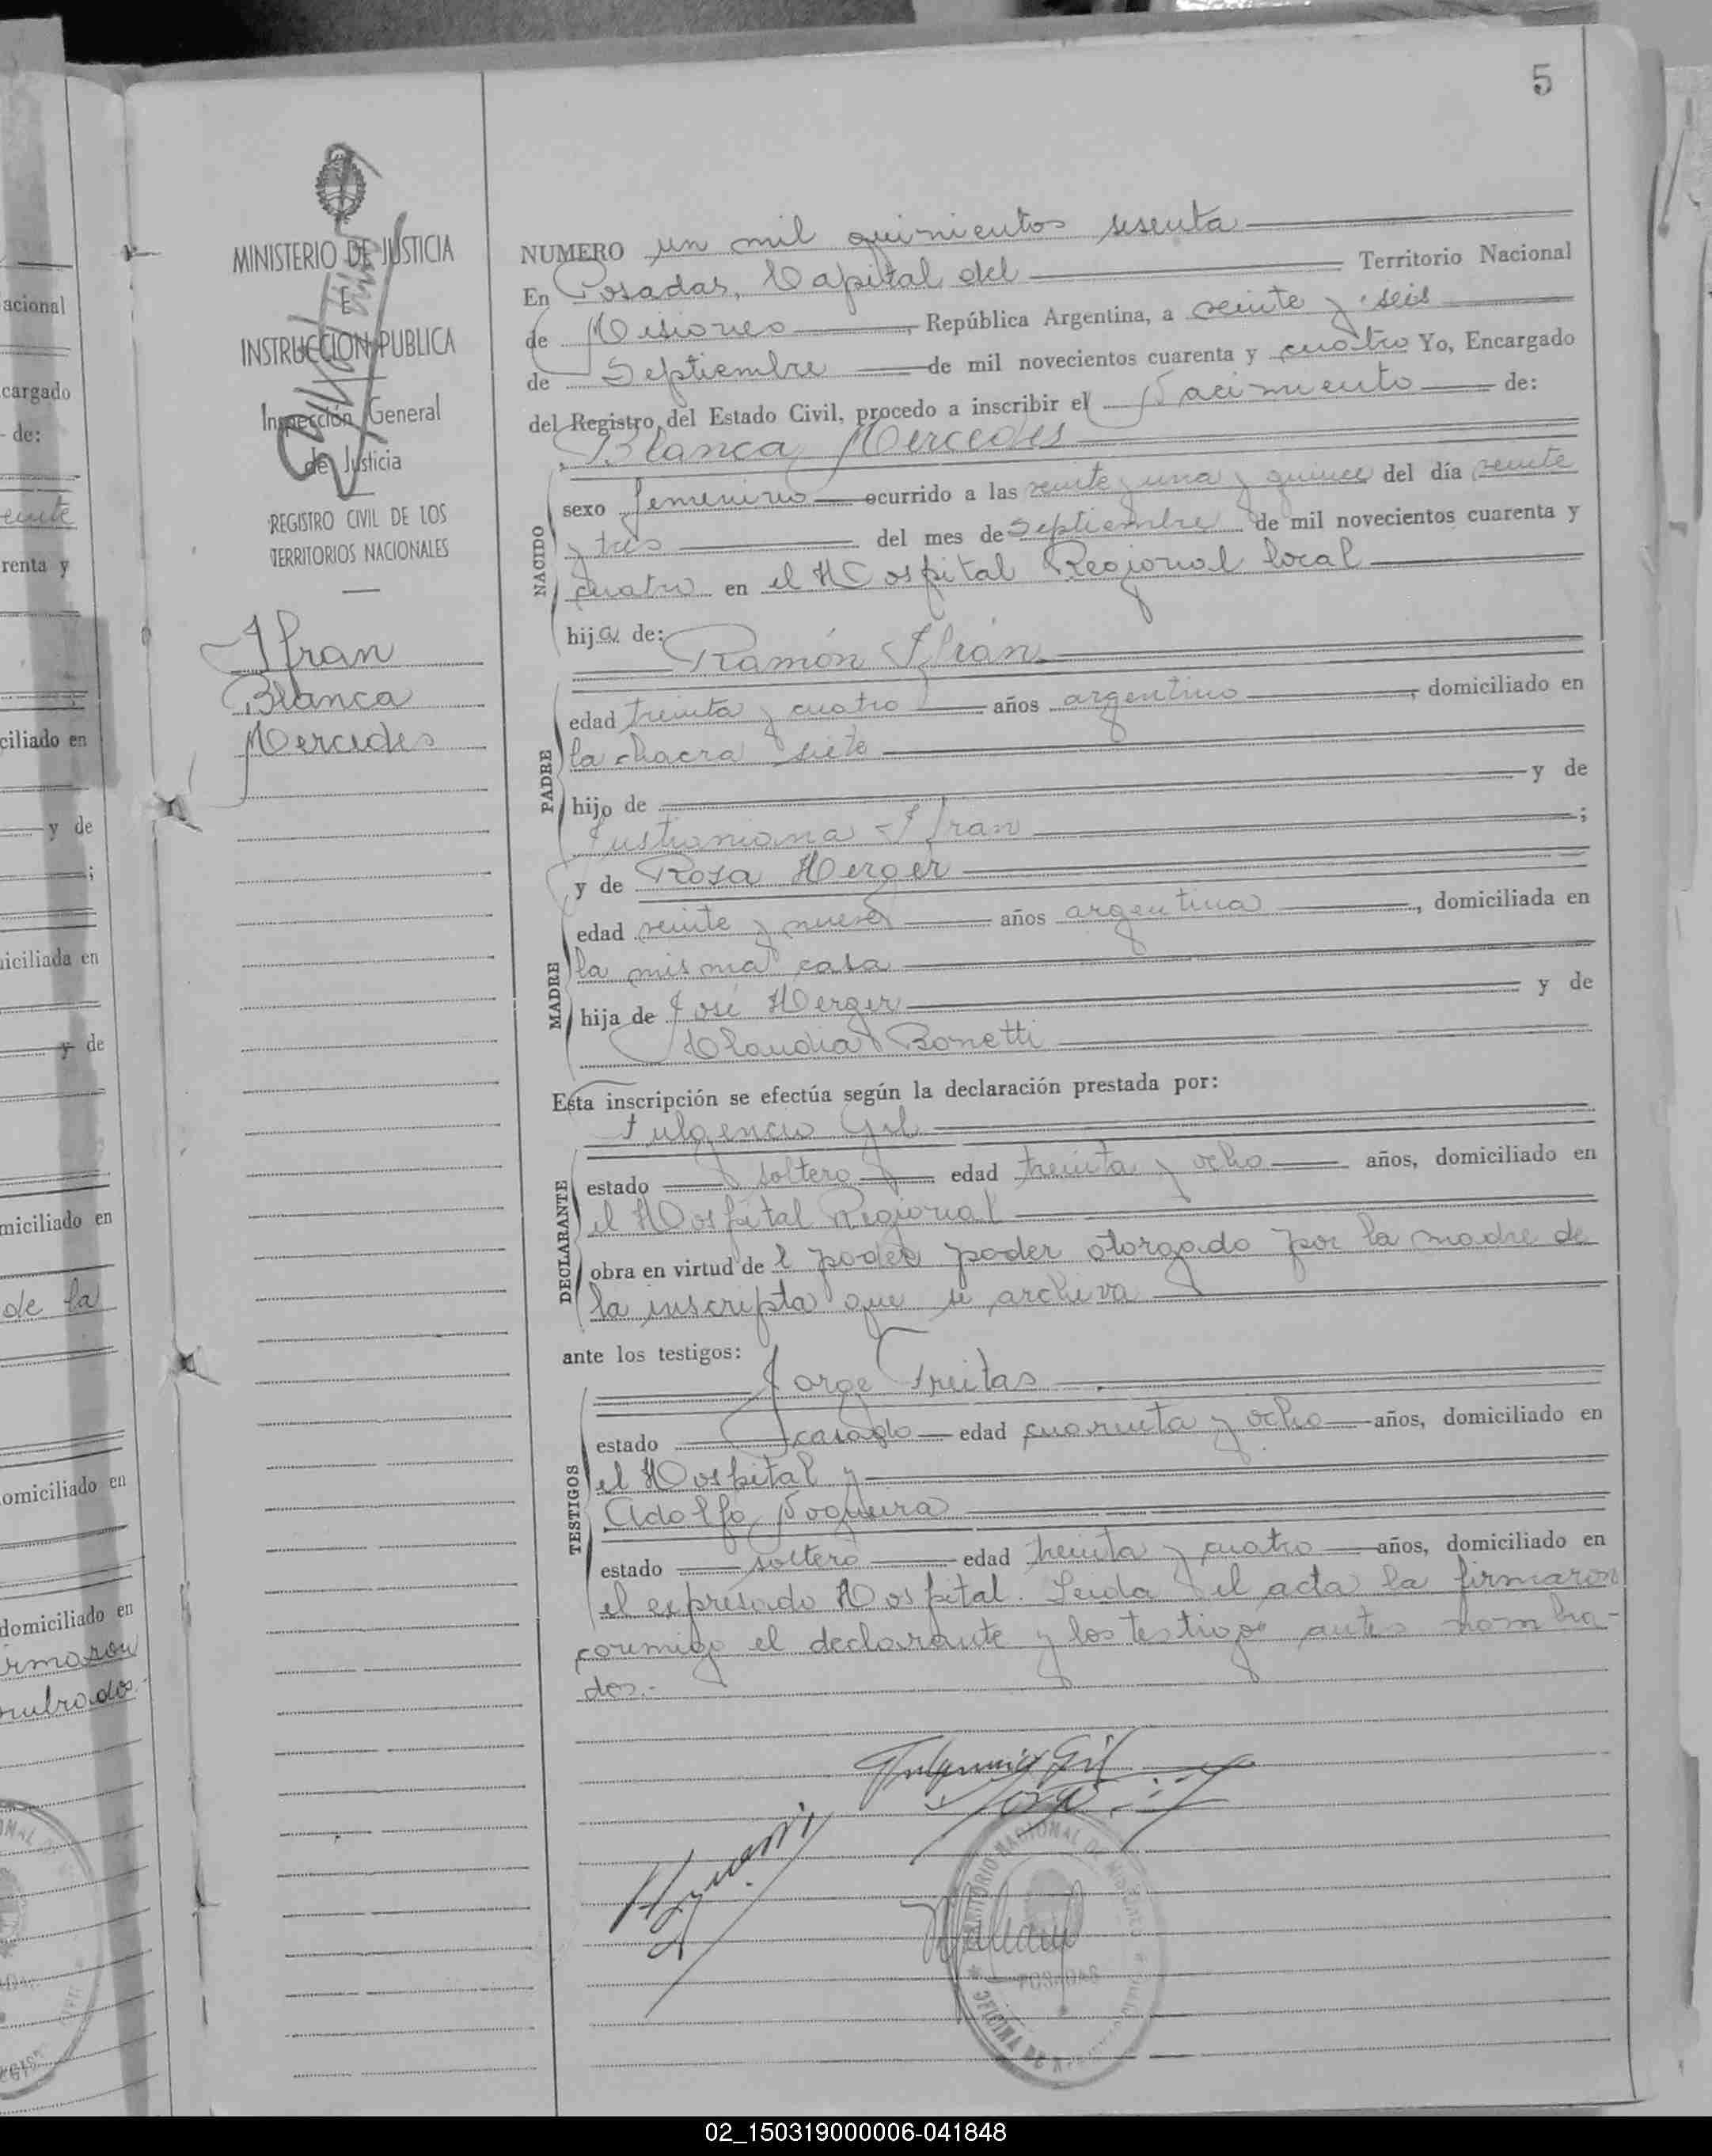 5
MINISTERIO DE JUSTICIA
E
INSTRUCCION PUBLICA
Inspección General
de Justicia
REGISTRO CIVIL DE LOS
TERRITORIOS NACIONALES
Ifran
Blanca
Mercedes
NUMERO un mil quinientos sesenta
En Posadas, Capital del Territorio Nacional
de Misiones, República Argentina, a veinte y seis
de Septiembre de mil novecientos cuarenta y cuatro Yo, Encargado
del Registro del Estado Civil, procedo a inscribir el Nacimiento de:
Blanca Mercedes
NACIDO
sexo femenino ocurrido a las veinte y una y quince del día veinte
y tres del mes de Septiembre de mil novecientos cuarenta y
cuatro en el Hospital Regional local
hija de:
Ramón Ifrán
PADRE
edad treinta y cuatro años argentino, domiciliado en
la chacra siete
hijo de y de
Justiniana Ifran ;
y de Rosa Herger
MADRE
edad veinte y nueve años argentina, domiciliada en
la misma casa
hija de José Herger y de
Claudia Bonetti
Esta inscripción se efectúa según la declaración prestada por:
Fulgencio Gil
DECLARANTE
estado soltero edad treinta y ocho años, domiciliado en
el Hospital Regional
obra en virtud de l poder poder otorgado por la madre de
la inscripta que se archiva
ante los testigos:
Jorge Freitas
TESTIGOS
estado casado edad cuarenta y ocho años, domiciliado en
el Hospital y
Adolfo Noguera
estado soltero edad treinta y cuatro años, domiciliado en
el expresado Hospital. Leida el acta la firmaron
conmigo el declarante y los testigos antes nombra-
dos.-
Fulgencio Gil
TERRITORIO NACIONAL DE MISIONES
POSADAS
OFICINA DE
acional
cargado
de:
veinte
renta y
ciliado en
y de
;
iciliada en
y de
miciliado en
de la
omiciliado en
domiciliado en
irmaron
mbrados.-
02_150319000006-041848